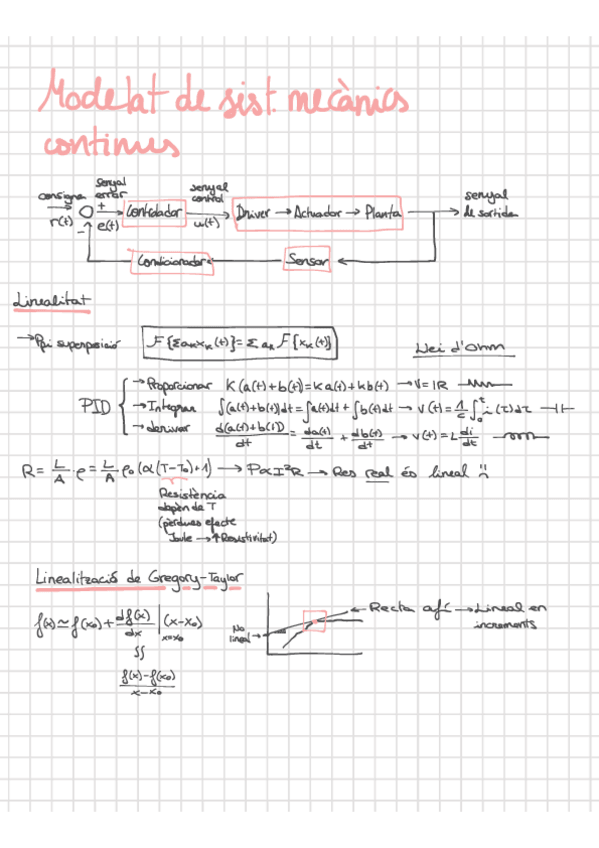 Modelat de sist. mecànics
continus
consigna
r(t)
+
-
senyal
error
e(t)
Controlador
senyal
control
u(t)
Driver → Actuador → Planta
senyal
de sortida
Condicionador
Sensor
Linealitat
→ Ppi superposició
F{Σaₖxₖ(t)} = Σaₖ F{xₖ(t)}
Llei d'Ohm
PID
→ Proporcionar K(a(t)+b(t)) = Ka(t)+Kb(t) → V=IR
→ Integrar ∫(a(t)+b(t))dt = ∫a(t)dt + ∫b(t)dt → v(t) = 1/C ∫₀ᵗ i(τ)dτ
→ derivar d(a(t)+b(t))/dt = da(t)/dt + db(t)/dt → v(t) = L di/dt
R = L/A · ρ = L/A ρ₀(α(T-T₀)+1) → P∝I²R → Res real és lineal
Resistència
depèn de T
(pèrdues efecte
Joule → ↑Resistivitat)
Linealització de Gregory-Taylor
f(x) ≃ f(x₀) + df(x)/dx |x=x₀ (x-x₀)
f(x)-f(x₀)/x-x₀
No
lineal
Recta afí → Lineal en
increments